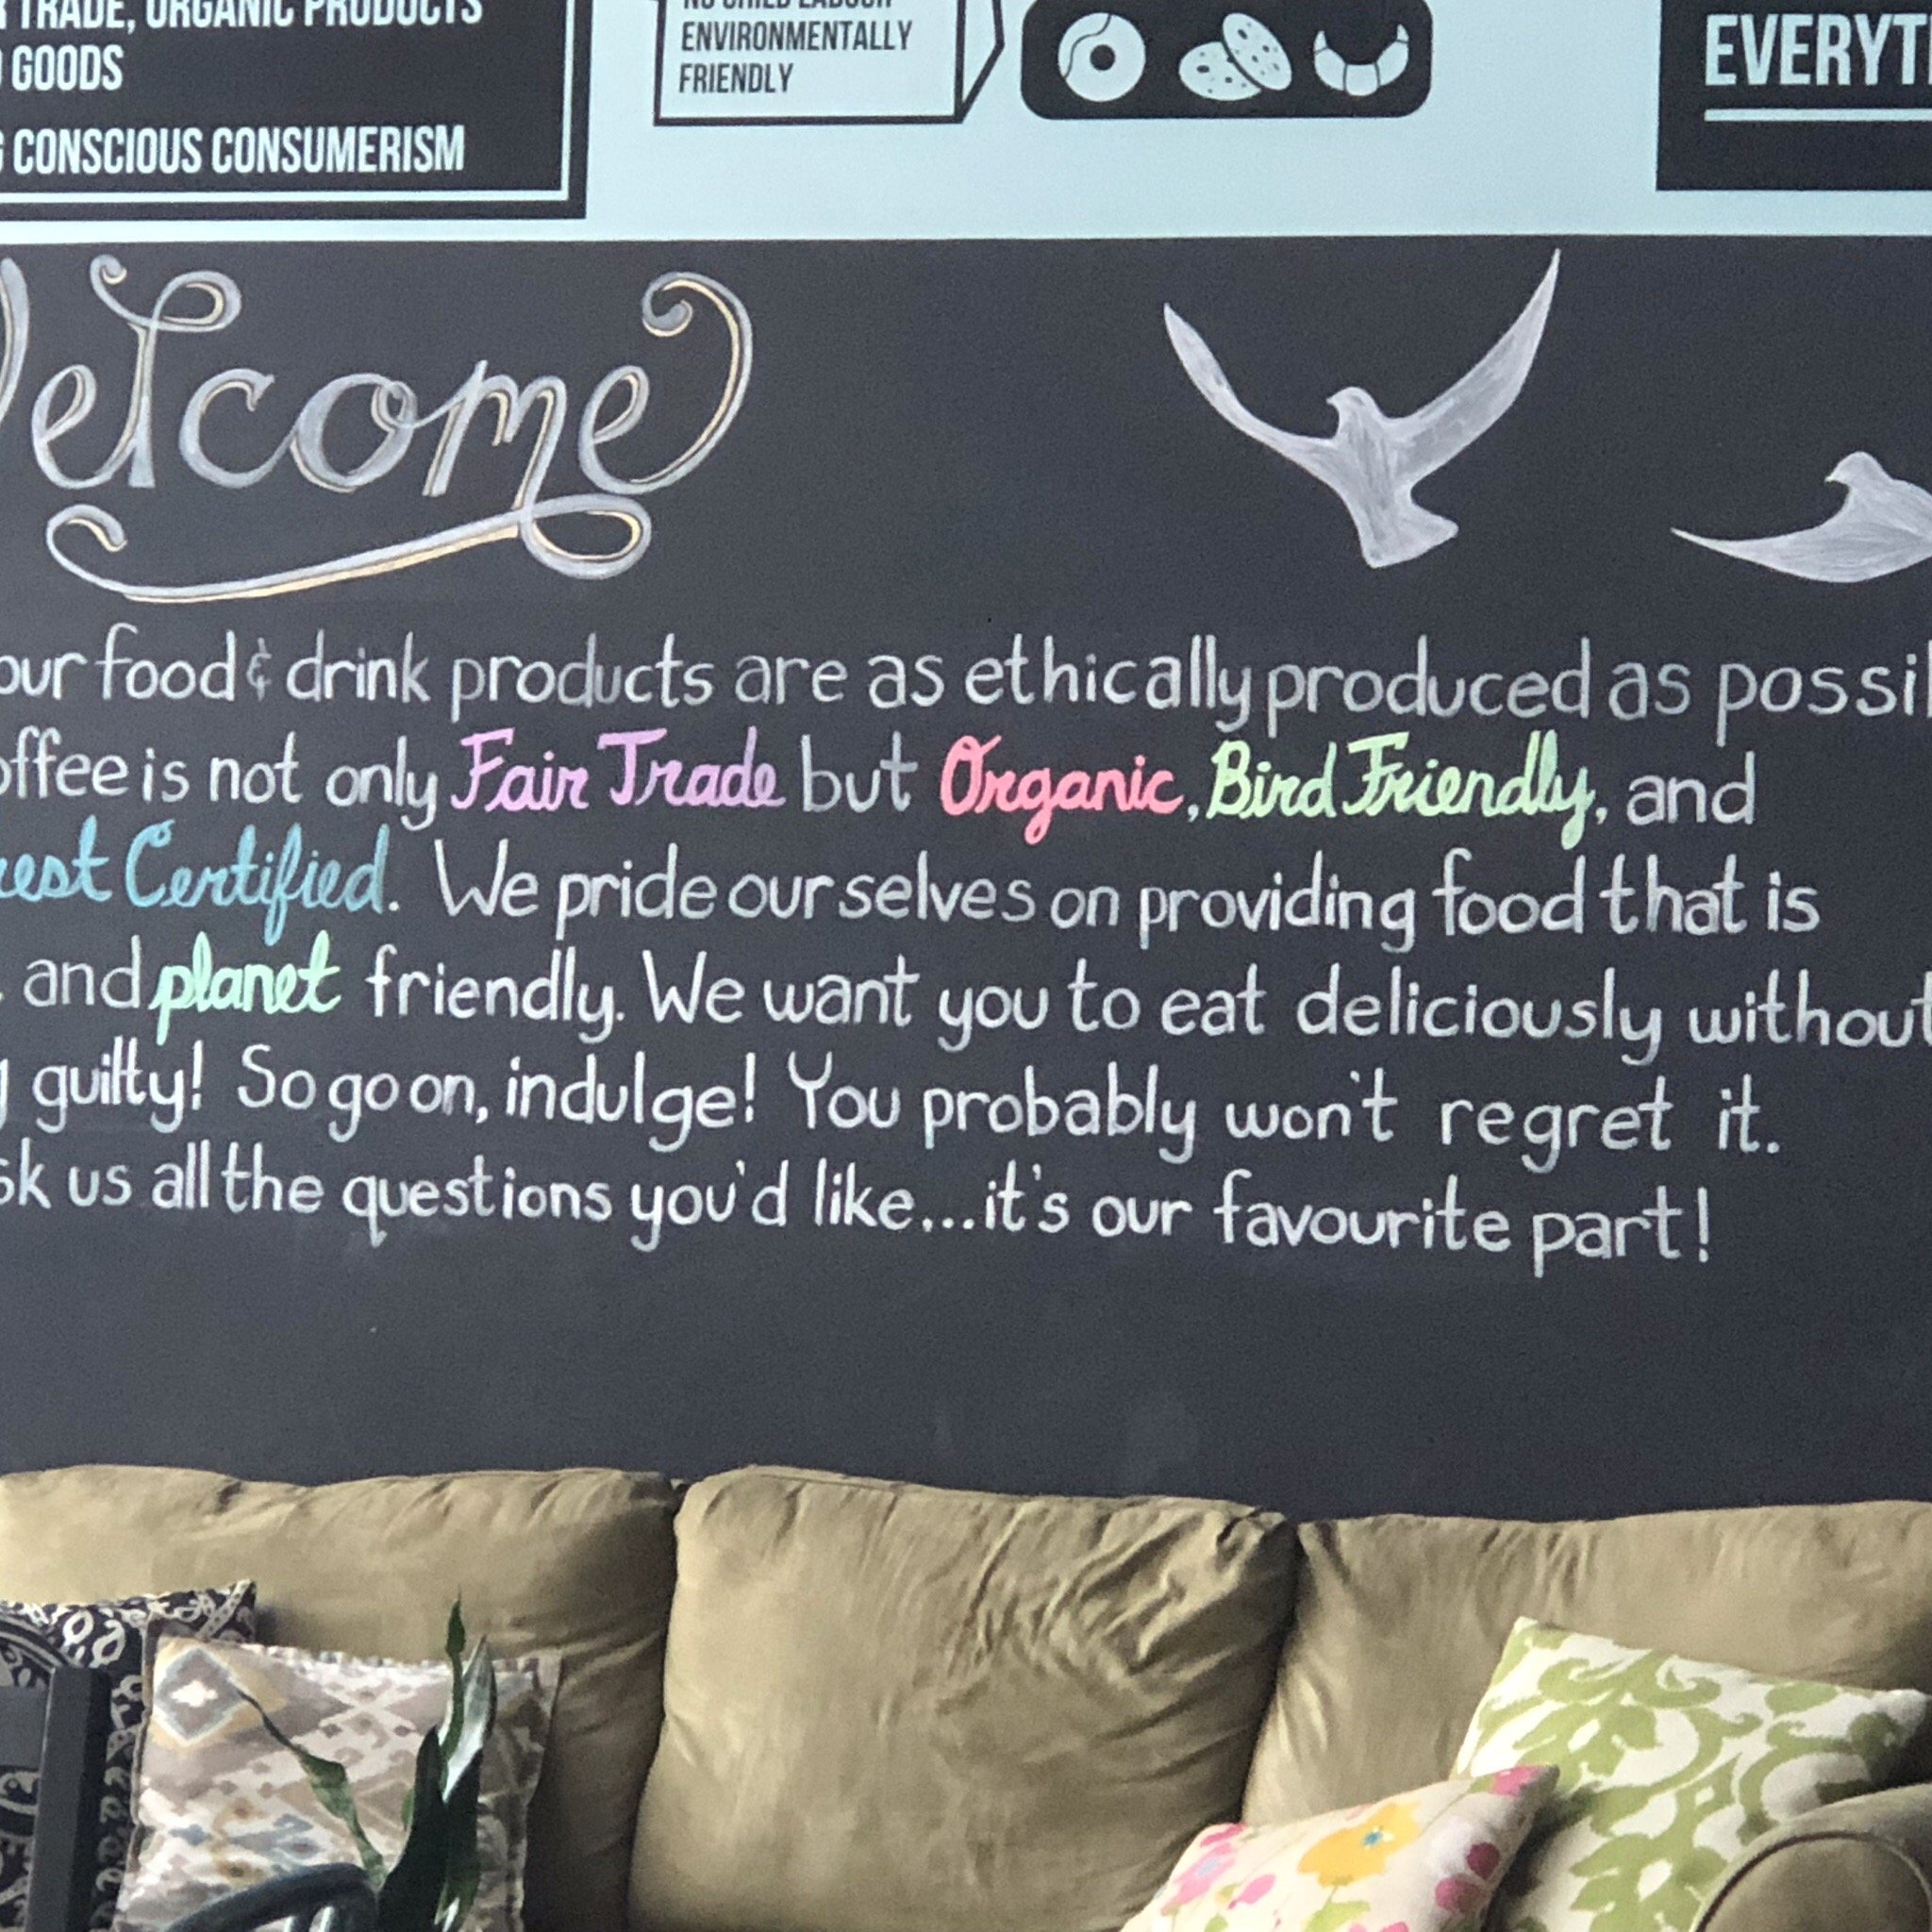 TRADE, ORGANIC PRODUCTS
GOODS
CONSCIOUS CONSUMERISM
NO CHILD LABOUR
ENVIRONMENTALLY
FRIENDLY
Welcome
our food & drink products are as ethically produced as
is not only Fair Trade but Organic, Bird Friendly, and
Certified. We pride ourselves on providing food that is
and planet friendly. We want you to eat deliciously without
guilty! So go on, indulge! You probably won't regret it.
us all the questions you'd like...it's our favourite part!